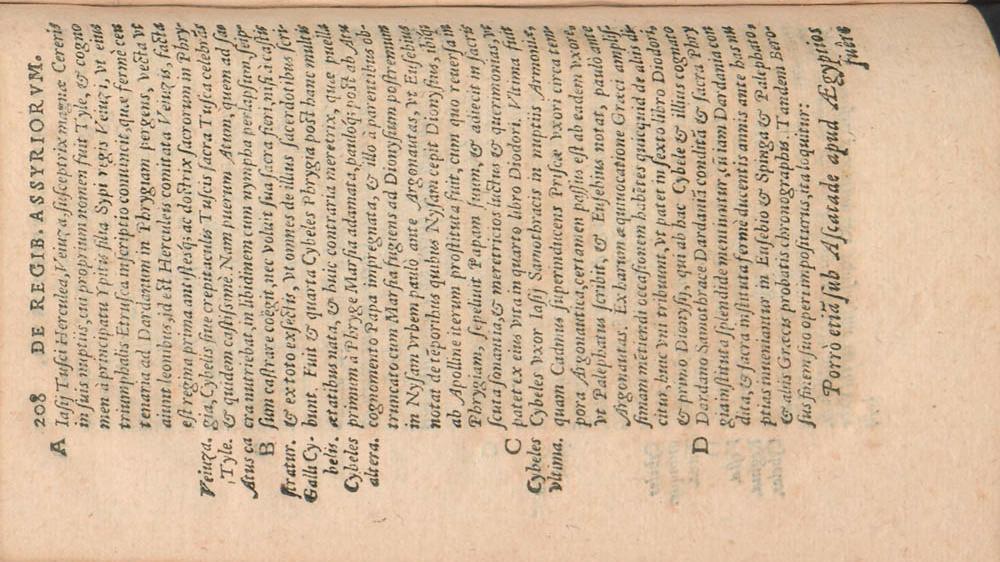 208 DE REGIB. ASSYRIORVM.
A
Iasij Tusci Herculea, Veiuza, susceptrix magnæ Cereris
in suis nuptijs, cui proprium nomen fuit Tyle, & cogno
men à principatu Ypitis filia Sypi regis Veiuz i, vt eius
triumphalis Etrusca inscriptio conuincit, quæ fermè cen
tenaria ad Dardanum in Phrygiam pergens, vecta vt
aiunt leonibus, id est Herculeis comitata Veiuz is, facta
est regina prima antistesq́; ac doctrix sacrorum in Phry
Veiuza, gia, Cybelis siue crepitaculis Tuscis sacra Tusca celebrās
Tyle. & quidem castissimè. Nam puerum Atum, quem ad sa
Atus ca cra nutriebat, in libidinem cum nympha perlapsum, seip
B
sum castrare coëgit, nec voluit sua sacra fieri, nisi à castis
stratur. & ex toto exsectis, vt omnes de illius sacerdotibus scri
Galli Cy- bunt. Fuit & quarta Cybeles Phrygia post hanc multis
belis. ætatibus nata, & huic contraria meretrix, quæ puella
Cybeles primum à Phryge Marsia adamata, pauloq́; post ab Atu
altera. cognomento Papa imprægnata, & illo à parentibus ob-
truncato cum Marsia fugiens ad Dionysium postremum
in Nysam vrbem paulò ante Argonautas, vt Eusebius
notat de tēporibus quibus Nysam cepit Dionysius, ibiq́;
ab Apolline iterum prostituta fuit, cum quo reuersa in
Phrygiam, sepeliuit Papam suum, & adiecit in sacris
scuta sonantia, & meretricios luctus & querimonias, vt
C
patet ex eius vita in quarto libro Diodori. Vltima fuit
Cybeles Cybeles vxor Iasij Samothracis in nuptijs Armonię,
vltima. quam Cadmus superinducens Priscæ vxori circa tem
pora Argonautica, certamen passus est ab eadem vxore,
vt Palephatus scribit, & Eusebius notat, paulò ante
Argonautas. Ex harum æquiuocatione Græci amplis
simam mētiendi occasionem habētes quicquid de alijs di
citur huic vni tribuunt, vt patet in sexto libro Diodori,
& primo Dionysij, qui ab hac Cybele & illius cognato
D
Dardano Samothrace Dardaniā conditā & sacra Phry
gia instituta splendide mentiuntur, cū iam Dardania con
dita, & sacra instituta fermè ducentis annis ante has nu
ptias inueniantur in Eusebio & Spinga & Palephato,
& alijs Græcis probatis chronographis. Tandem Bero-
sus finem suo operi impositurus, ita loquitur:
Porrò etiā sub Ascatade apud Ægyptios
fuêre